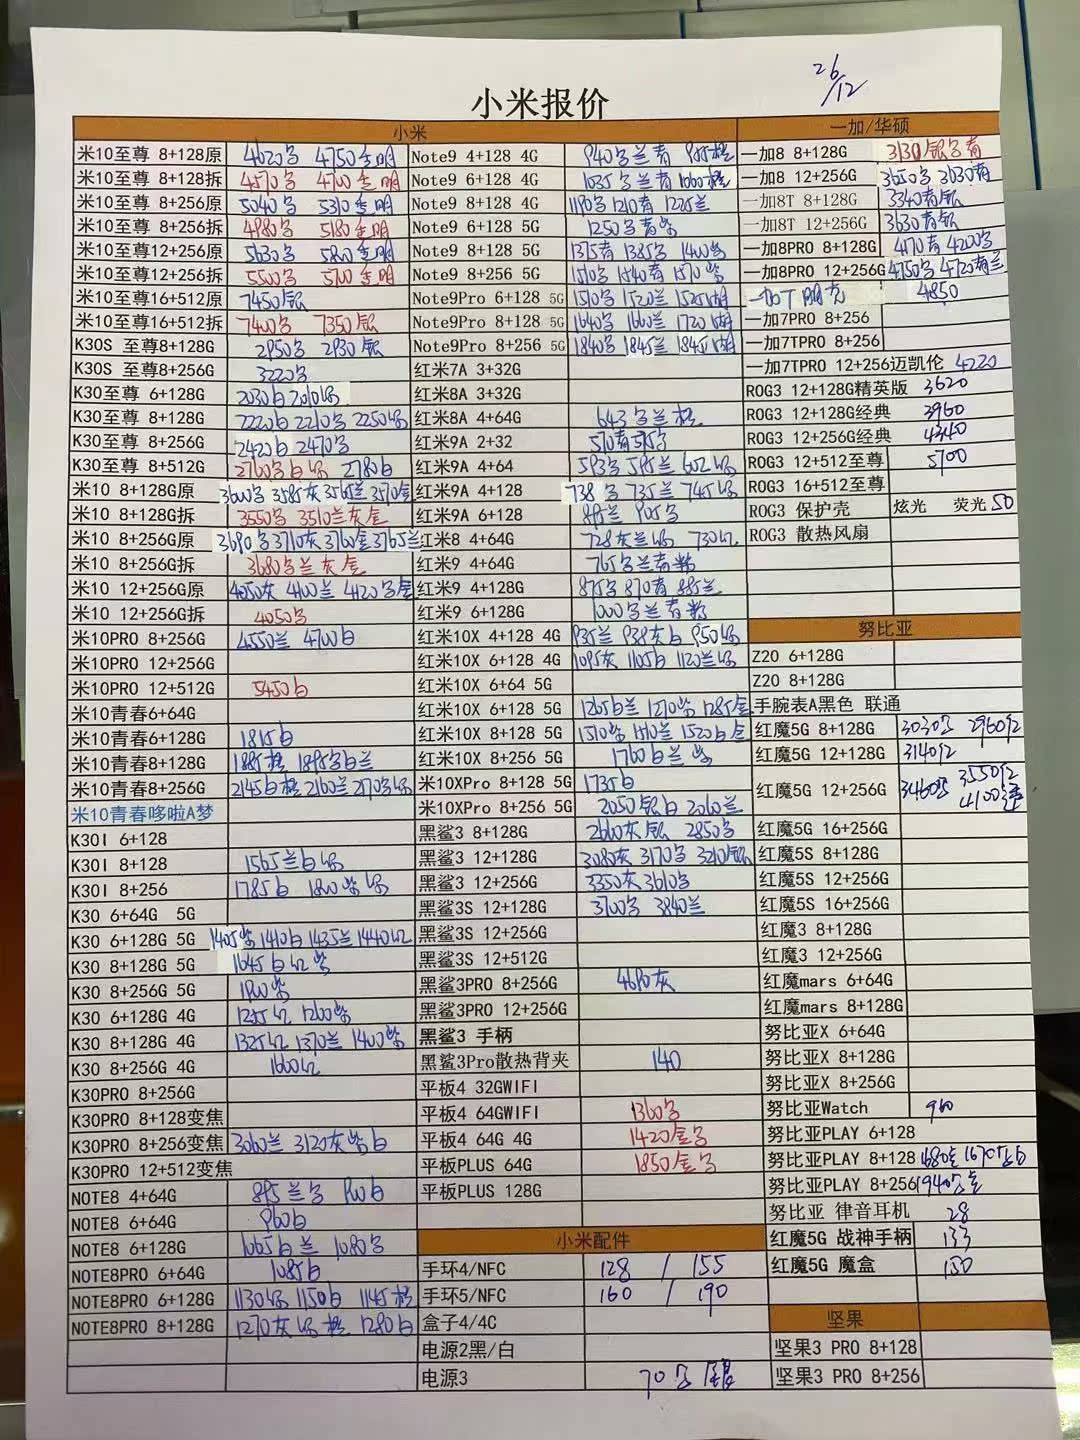 26/12
小米报价
小米
米10至尊 8+128原 4620 4750
米10至尊 8+128拆 4570 4700
米10至尊 8+256原 5040 5310
米10至尊 8+256拆 4980 5180
米10至尊12+256原 5630 5800
米10至尊12+256拆 5500 5700
米10至尊16+512原 7450银
米10至尊16+512拆 7400 7350银
K30S 至尊8+128G 2950 2930银
K30S 至尊8+256G 3220
K30至尊 6+128G 2030白 2010
K30至尊 8+128G 2220白 2210 2250
K30至尊 8+256G 2420白 2470
K30至尊 8+512G 2760 2780白
米10 8+128G原 3600 3585灰 3565兰 3570金
米10 8+128G拆 3550 3510兰灰金
米10 8+256G原 3690 3710灰 3760金 3765兰
米10 8+256G拆 3680 兰灰金
米10 12+256G原 4050灰 4100兰 4120
米10 12+256G拆 4050
米10PRO 8+256G 4550兰 4700白
米10PRO 12+256G
米10PRO 12+512G 5450白
米10青春6+64G
米10青春6+128G 1815白
米10青春8+128G 1885 1895
米10青春8+256G 2145白 2160兰 2170
米10青春哆啦A梦
K30I 6+128
K30I 8+128 1565兰白
K30I 8+256 1785白 1800紫
K30 6+64G 5G
K30 6+128G 5G 1405紫 1410白 1435兰 1440红
K30 8+128G 5G 1645白红紫
K30 8+256G 5G 1900紫
K30 6+128G 4G 1255红 1260紫
K30 8+128G 4G 1325红 1370兰 1400紫
K30 8+256G 4G 1660红
K30PRO 8+256G
K30PRO 8+128变焦
K30PRO 8+256变焦 3060兰 3120灰紫白
K30PRO 12+512变焦
NOTE8 4+64G 895兰 900白
NOTE8 6+64G 960白
NOTE8 6+128G 1065白兰 1080
NOTE8PRO 6+64G 1085白
NOTE8PRO 6+128G 1130 1150白 1145
NOTE8PRO 8+128G 1270灰 1280白
Note9 4+128 4G 940 兰青 985
Note9 6+128 4G 1035 兰青 1060
Note9 8+128 4G 1190 1210青 1225兰
Note9 6+128 5G 1250 青紫
Note9 8+128 5G 1375青 1385 1400紫
Note9 8+256 5G 1510 1540青 1570紫
Note9Pro 6+128 5G 1510 1520兰 1525湖
Note9Pro 8+128 5G 1640 1660兰 1720湖
Note9Pro 8+256 5G 1840 1845兰 1845湖
红米7A 3+32G
红米8A 3+32G
红米8A 4+64G 643 兰
红米9A 2+32 510青 515
红米9A 4+64 593 595兰 602
红米9A 4+128 738 735兰 745
红米9A 6+128 895兰 905
红米8 4+64G 728灰兰 730红
红米9 4+64G 765 兰青粉
红米9 4+128G 875 870青 885兰
红米9 6+128G 1000 兰青粉
红米10X 4+128 4G 935兰 938灰白 950
红米10X 6+128 4G 1095灰 1105白 1120兰
红米10X 6+64 5G
红米10X 6+128 5G 1265白兰 1270紫 1285金
红米10X 8+128 5G 1510紫 1510兰 1520白金
红米10X 8+256 5G 1760白兰紫
米10XPro 8+128 5G 1735白
米10XPro 8+256 5G 2050银白 2060兰
黑鲨3 8+128G 2660灰银 2850
黑鲨3 12+128G 3080灰 3170 3210银
黑鲨3 12+256G 3350灰 3610
黑鲨3S 12+128G 3700 3840兰
黑鲨3S 12+256G
黑鲨3S 12+512G
黑鲨3PRO 8+256G 4690灰
黑鲨3PRO 12+256G
黑鲨3 手柄
黑鲨3Pro散热背夹 140
平板4 32GWIFI
平板4 64GWIFI 1360
平板4 64G 4G 1420金
平板PLUS 64G 1850金
平板PLUS 128G
小米配件
手环4/NFC 128 / 155
手环5/NFC 160 / 190
盒子4/4C
电源2黑/白
电源3 70 银
一加/华硕
一加8 8+128G 3130 银 青
一加8 12+256G 3650 3630青
一加8T 8+128G 3340青银
一加8T 12+256G 3630青银
一加8PRO 8+128G 4170青 4200
一加8PRO 12+256G 4750 4720青兰
一加T朋克 4850
一加7PRO 8+256
一加7TPRO 8+256
一加7TPRO 12+256迈凯伦 4220
ROG3 12+128G精英版 3620
ROG3 12+128G经典 3960
ROG3 12+256G经典 4340
ROG3 12+512至尊 5700
ROG3 16+512至尊
ROG3 保护壳 炫光 荧光 50
ROG3 散热风扇
努比亚
Z20 6+128G
Z20 8+128G
手腕表A黑色 联通
红魔5G 8+128G 3030 2960红
红魔5G 12+128G 3140红
红魔5G 12+256G 3460 3550红 4100透
红魔5G 16+256G
红魔5S 8+128G
红魔5S 12+256G
红魔5S 16+256G
红魔3 8+128G
红魔3 12+256G
红魔mars 6+64G
红魔mars 8+128G
努比亚X 6+64G
努比亚X 8+128G
努比亚X 8+256G
努比亚Watch 960
努比亚PLAY 6+128
努比亚PLAY 8+128 1680 1670 白
努比亚PLAY 8+256 1940
努比亚 律音耳机 28
红魔5G 战神手柄 133
红魔5G 魔盒 150
坚果
坚果3 PRO 8+128
坚果3 PRO 8+256